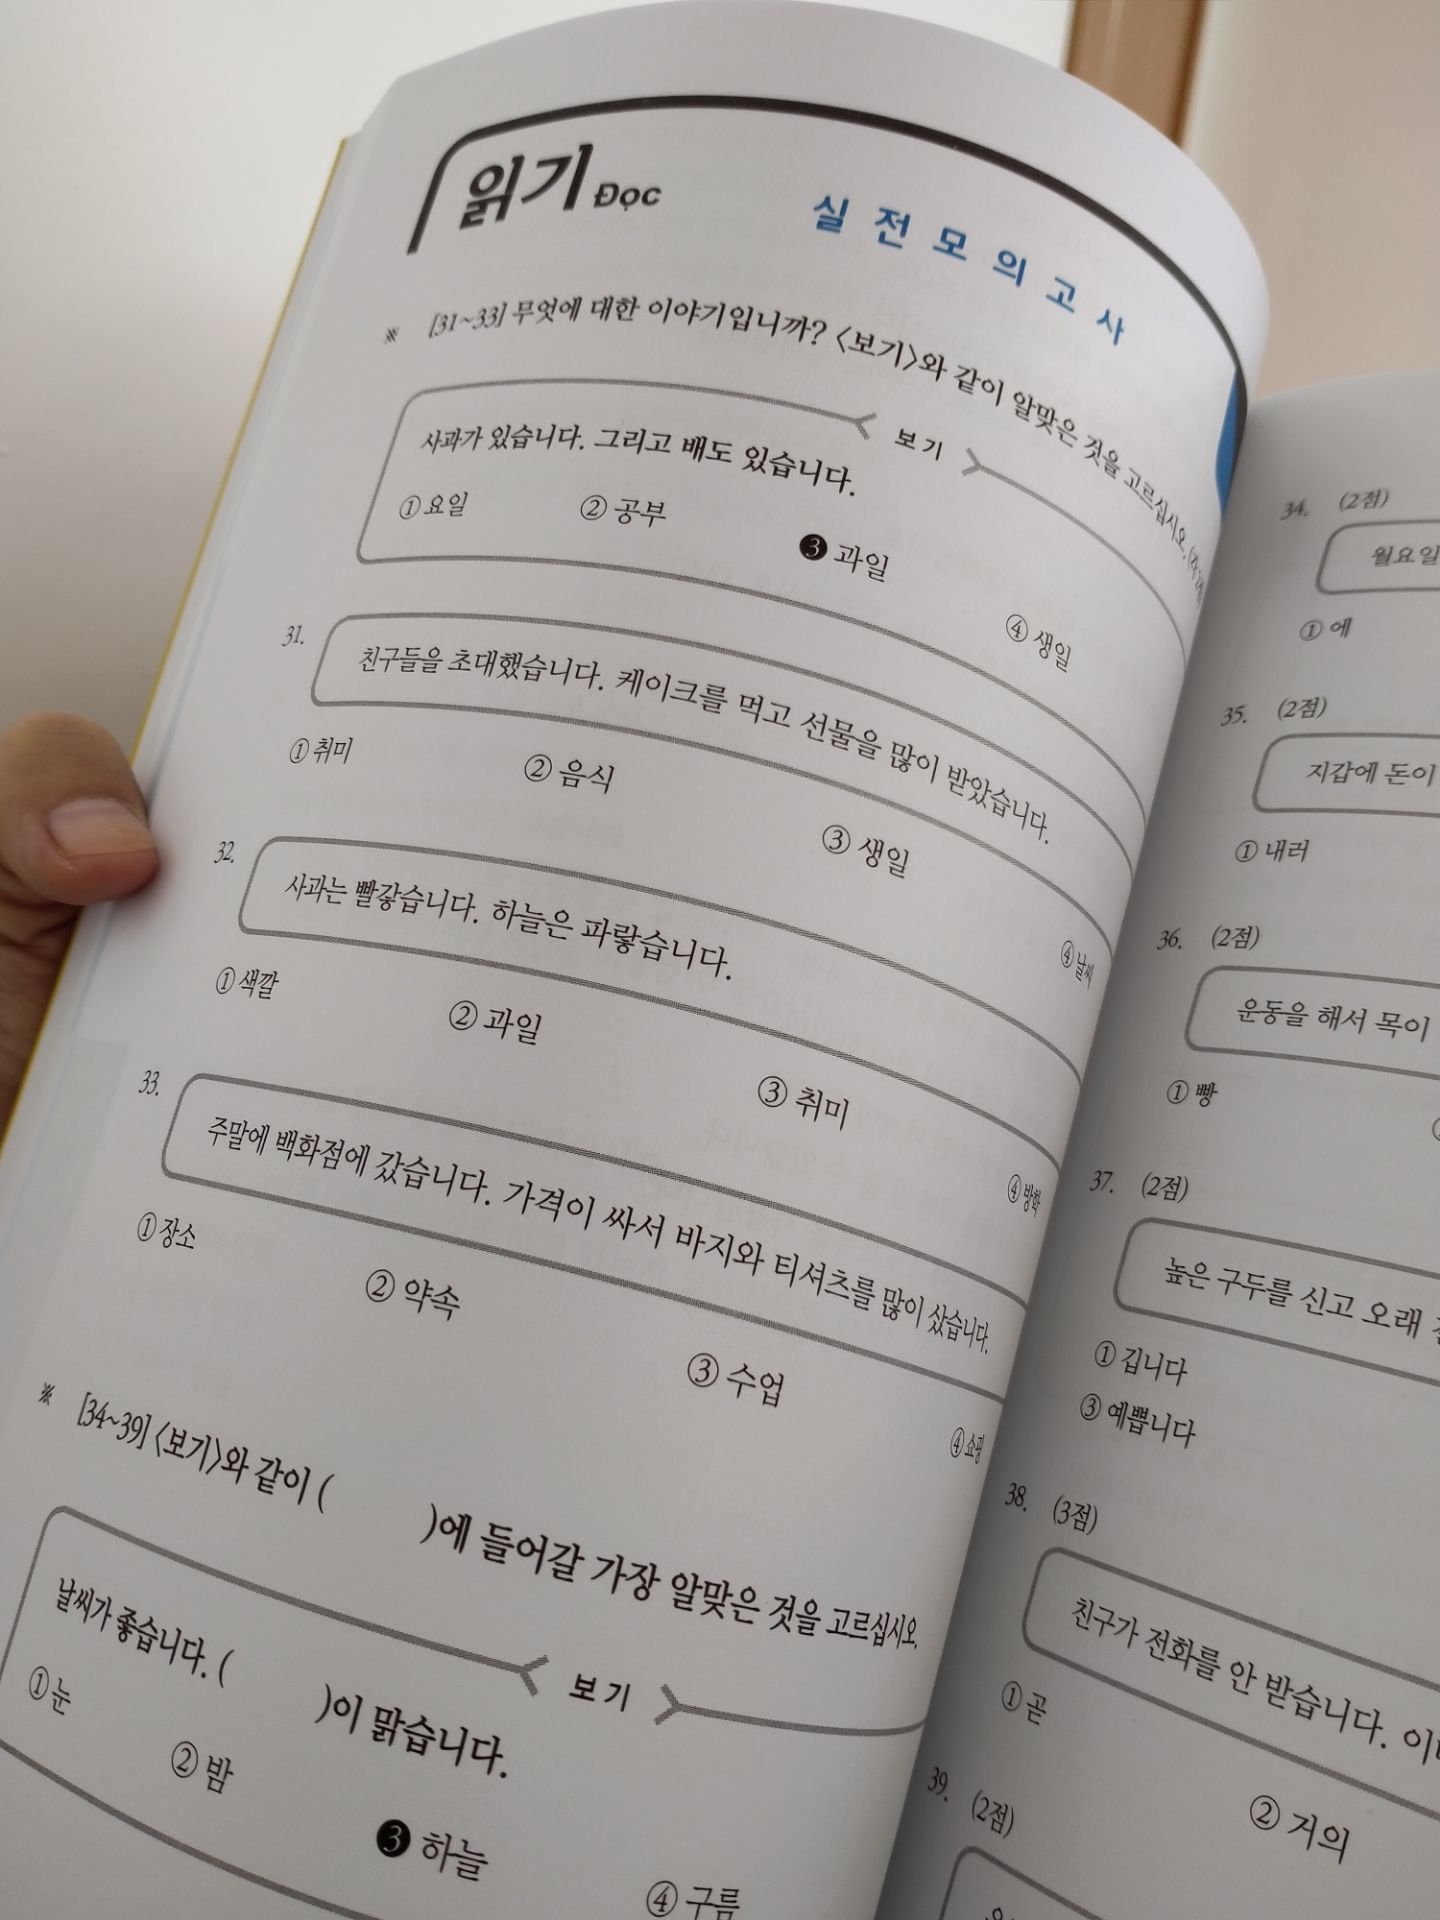 읽기 Đọc
실전모의고사
※ [31~33] 무엇에 대한 이야기입니까? 〈보기〉와 같이 알맞은 것을 고르십시오.
보기
사과가 있습니다. 그리고 배도 있습니다.
① 요일 ② 공부 ❸ 과일 ④ 생일
31.
친구들을 초대했습니다. 케이크를 먹고 선물을 많이 받았습니다.
① 취미 ② 음식 ③ 생일 ④ 날씨
32.
사과는 빨갛습니다. 하늘은 파랗습니다.
① 색깔 ② 과일 ③ 취미 ④ 방학
33.
주말에 백화점에 갔습니다. 가격이 싸서 바지와 티셔츠를 많이 샀습니다.
① 장소 ② 약속 ③ 수업 ④ 쇼핑
※ [34~39] 〈보기〉와 같이 ( )에 들어갈 가장 알맞은 것을 고르십시오.
보기
날씨가 좋습니다. ( )이 맑습니다.
① 눈 ② 밤 ❸ 하늘 ④ 구름
34. (2점)
월요일
① 에
35. (2점)
지갑에 돈이
① 내러
36. (2점)
운동을 해서 목이
① 빵
37. (2점)
높은 구두를 신고 오래
① 깁니다
③ 예쁩니다
38. (3점)
친구가 전화를 안 받습니다.
① 곧 ② 거의
39. (2점)